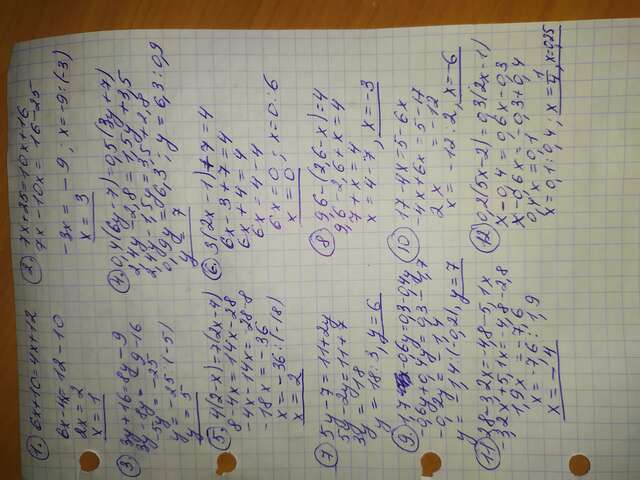 1. 6x+10=4x+12
6x-4x=12-10
2x=2
x=1
2. 7x+25=10x+16
7x-10x=16-25
-3x=-9; x=-9:(-3)
x=3
3 3y+16=8y-9
3y-8y=-9-16
-5y=-25
y=-25:(-5)
y=5
4. 0,4(6y-7)=0,5(3y+7)
2,4y-2,8=1,5y+3,5
2,4y-1,5y=3,5+2,8
0,9y=6,3; y=6,3:0,9
y=7
5 4(2-x)=7(2x-4)
8-4x=14x-28
-4x-14x=-28-8
-18x=-36
x=-36:(-18)
x=2
6. 3(2x-1)+7=4
6x-3+7=4
6x+4=4
6x=4-4
6x=0; x=0:6
x=0
7 5y-7=11+2y
5y-2y=11+7
3y=18
y=18:3, y=6
8 9,6-(2,6-x)=4
9,6-2,6+x=4
7+x=4
x=4-7, x=-3
9. 1,7 -0,6y=0,3-0,4y
-0,6y+0,4y=0,3-1,7
-0,2y=-1,4
y=1,4:0,2, y=7
10 17-4x=5-6x
-4x+6x=5-17
2x=-12
x=-12:2, x=-6
11 2,8-3,2x=-4,8-5,1x
-3,2x+5,1x=-4,8-2,8
1,9x=-7,6
x=-7,6:1,9
x=-4
12 0,2(5x-2)=0,3(2x-1)
x-0,4=0,6x-0,3
x-0,6x=-0,3+0,4
0,4x=0,1
x=0,1:0,4; x=1/4, x=0,25